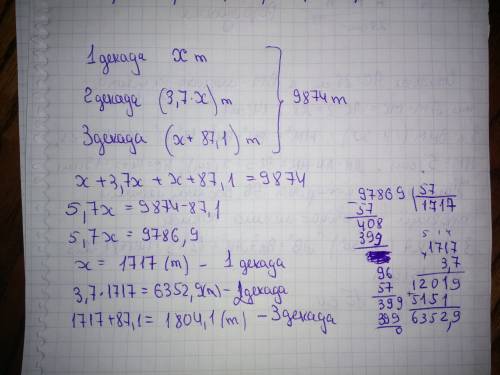 1 декада x т
2 декада (3,7·x) т
3 декада (x + 87,1) т
9874 т
x + 3,7x + x + 87,1 = 9874
5,7x = 9874 - 87,1
5,7x = 9786,9
x = 1717 (т) - 1 декада
3,7·1717 = 6352,9(т) - 2 декада
1717 + 87,1 = 1804,1 (т) - 3 декада
97869 | 57
57 1717
408
399
96
57
399
399
0
5 4
4
1717
3,7
12019
+5151
6352,9